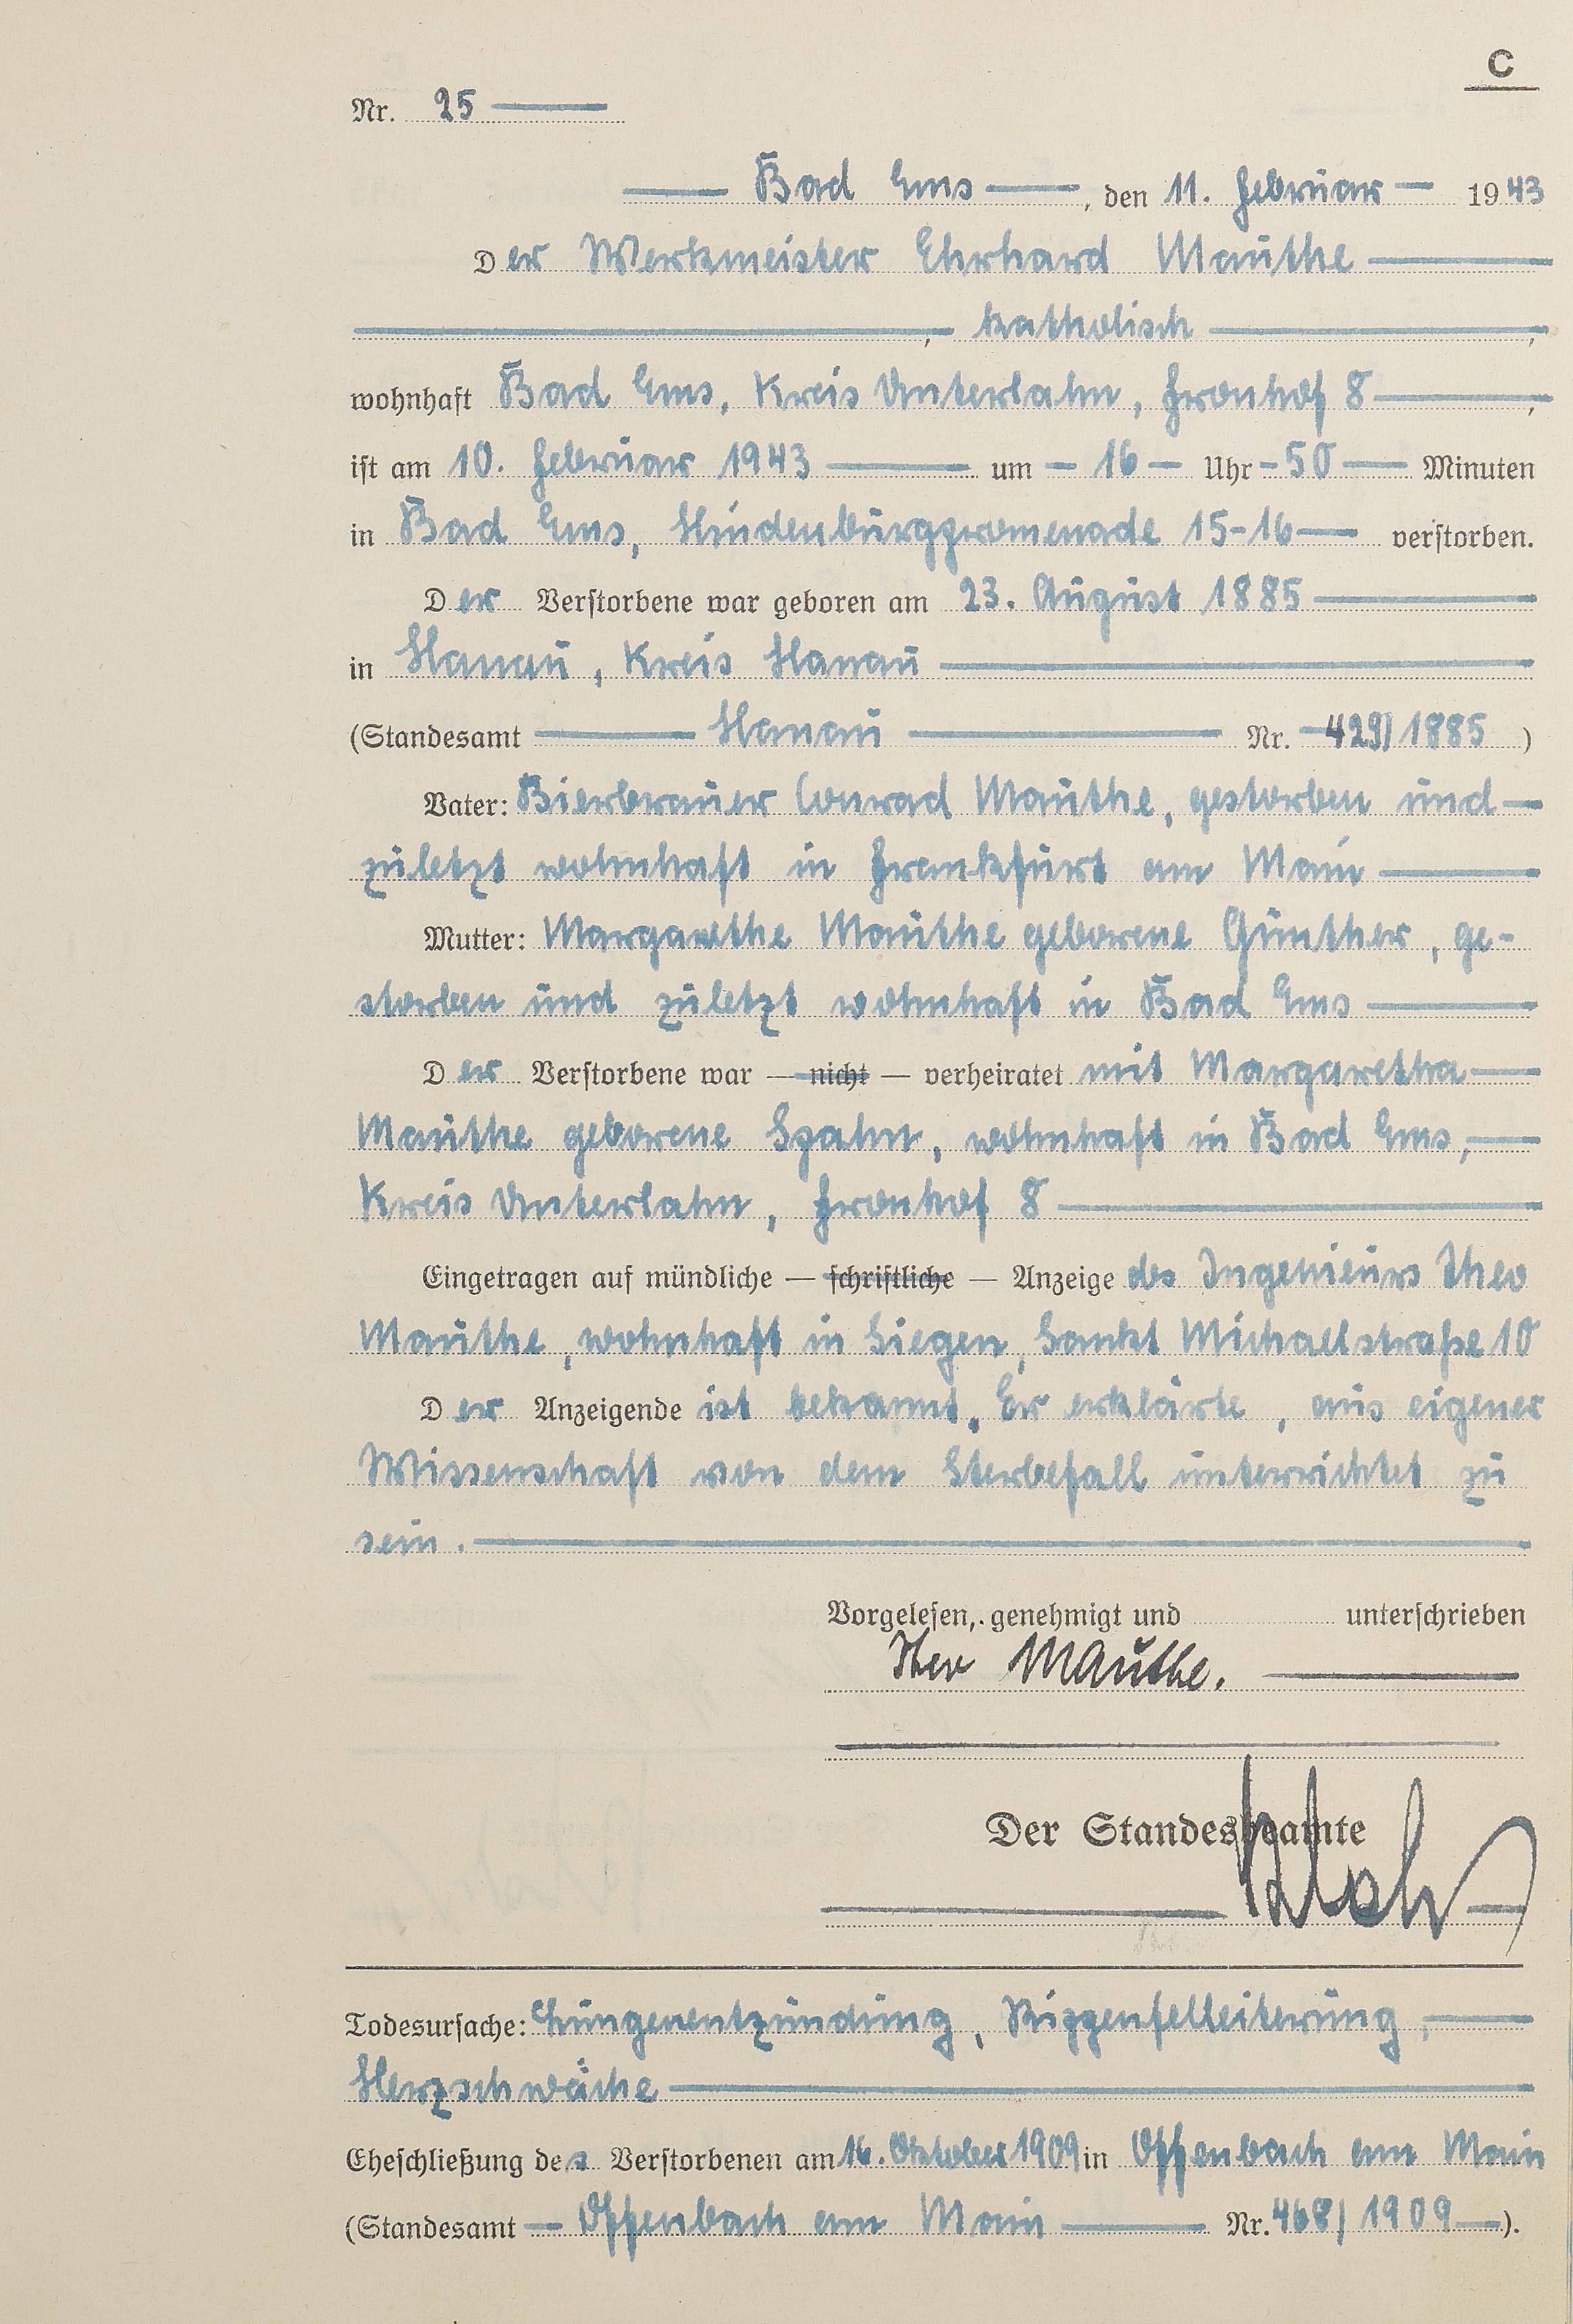 C
Nr. 25
Bad Ems, den 11. Februar 1943
Der Werkmeister Ehrhard Mauthe
, katholisch,
wohnhaft Bad Ems, Kreis Unterlahn, Fronhof 8,
ist am 10. Februar 1943 um 16 Uhr 50 Minuten
in Bad Ems, Hindenburgpromenade 15-16 verstorben.
Der Verstorbene war geboren am 23. August 1885
in Hanau, Kreis Hanau
(Standesamt Hanau Nr. 429/1885)
Vater: Bierbrauer Conrad Mauthe, gestorben und
zuletzt wohnhaft in Frankfurt am Main
Mutter: Margarethe Mauthe geborene Günther, ge-
storben und zuletzt wohnhaft in Bad Ems
Der Verstorbene war — nicht — verheiratet mit Margaretha
Mauthe geborene Spahn, wohnhaft in Bad Ems,
Kreis Unterlahn, Fronhof 8
Eingetragen auf mündliche — schriftliche — Anzeige des Ingenieurs Theo
Mauthe, wohnhaft in Siegen, Sankt Michaelstraße 10
Der Anzeigende ist bekannt. Er erklärte, aus eigener
Wissenschaft von dem Sterbefall unterrichtet zu
sein.
Vorgelesen, genehmigt und unterschrieben
Theo Mauthe.
Der Standesbeamte
Todesursache: Lungenentzündung, Rippenfelleiterung,
Herzschwäche
Eheschließung des Verstorbenen am 16. Oktober 1909 in Offenbach am Main
(Standesamt Offenbach am Main Nr. 468/1909).